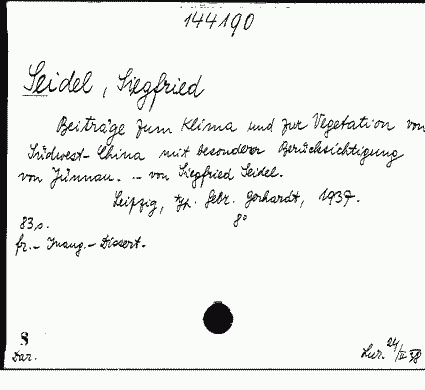 144190
Seidel, Siegfried
Beiträge zum Klima und zur Vegetation von
Südwest-China mit besonderer Berücksichtigung
von Jünnau. - von Siegfried Seidel.
Leipzig, typ. Gebr. Gerhardt, 1937.
83 s. 8°
fr. - Inaug. - Dissert.
S
Dar.